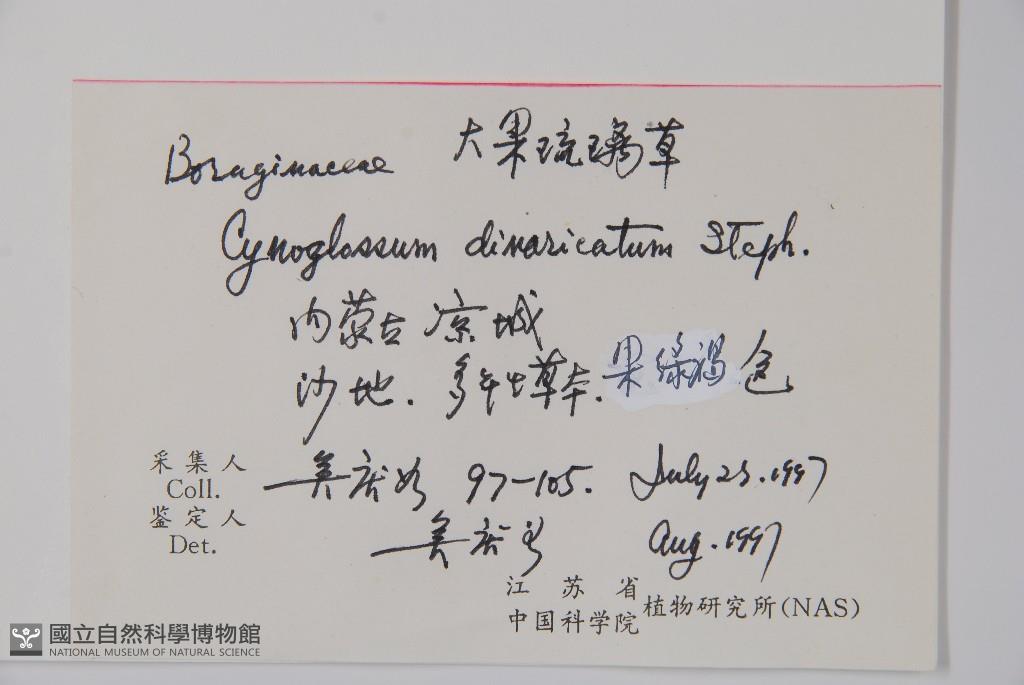 Boraginaceae 大果琉璃草
Cynoglossum divaricatum Steph.
内蒙古凉城
沙地. 多年生草本. 果绿褐色
采集人 吴庆如 97-105. July 23. 1997
Coll.
鉴定人 吴庆如 Aug. 1997
Det.
江苏省
中国科学院 植物研究所(NAS)
國立自然科學博物館
NATIONAL MUSEUM OF NATURAL SCIENCE